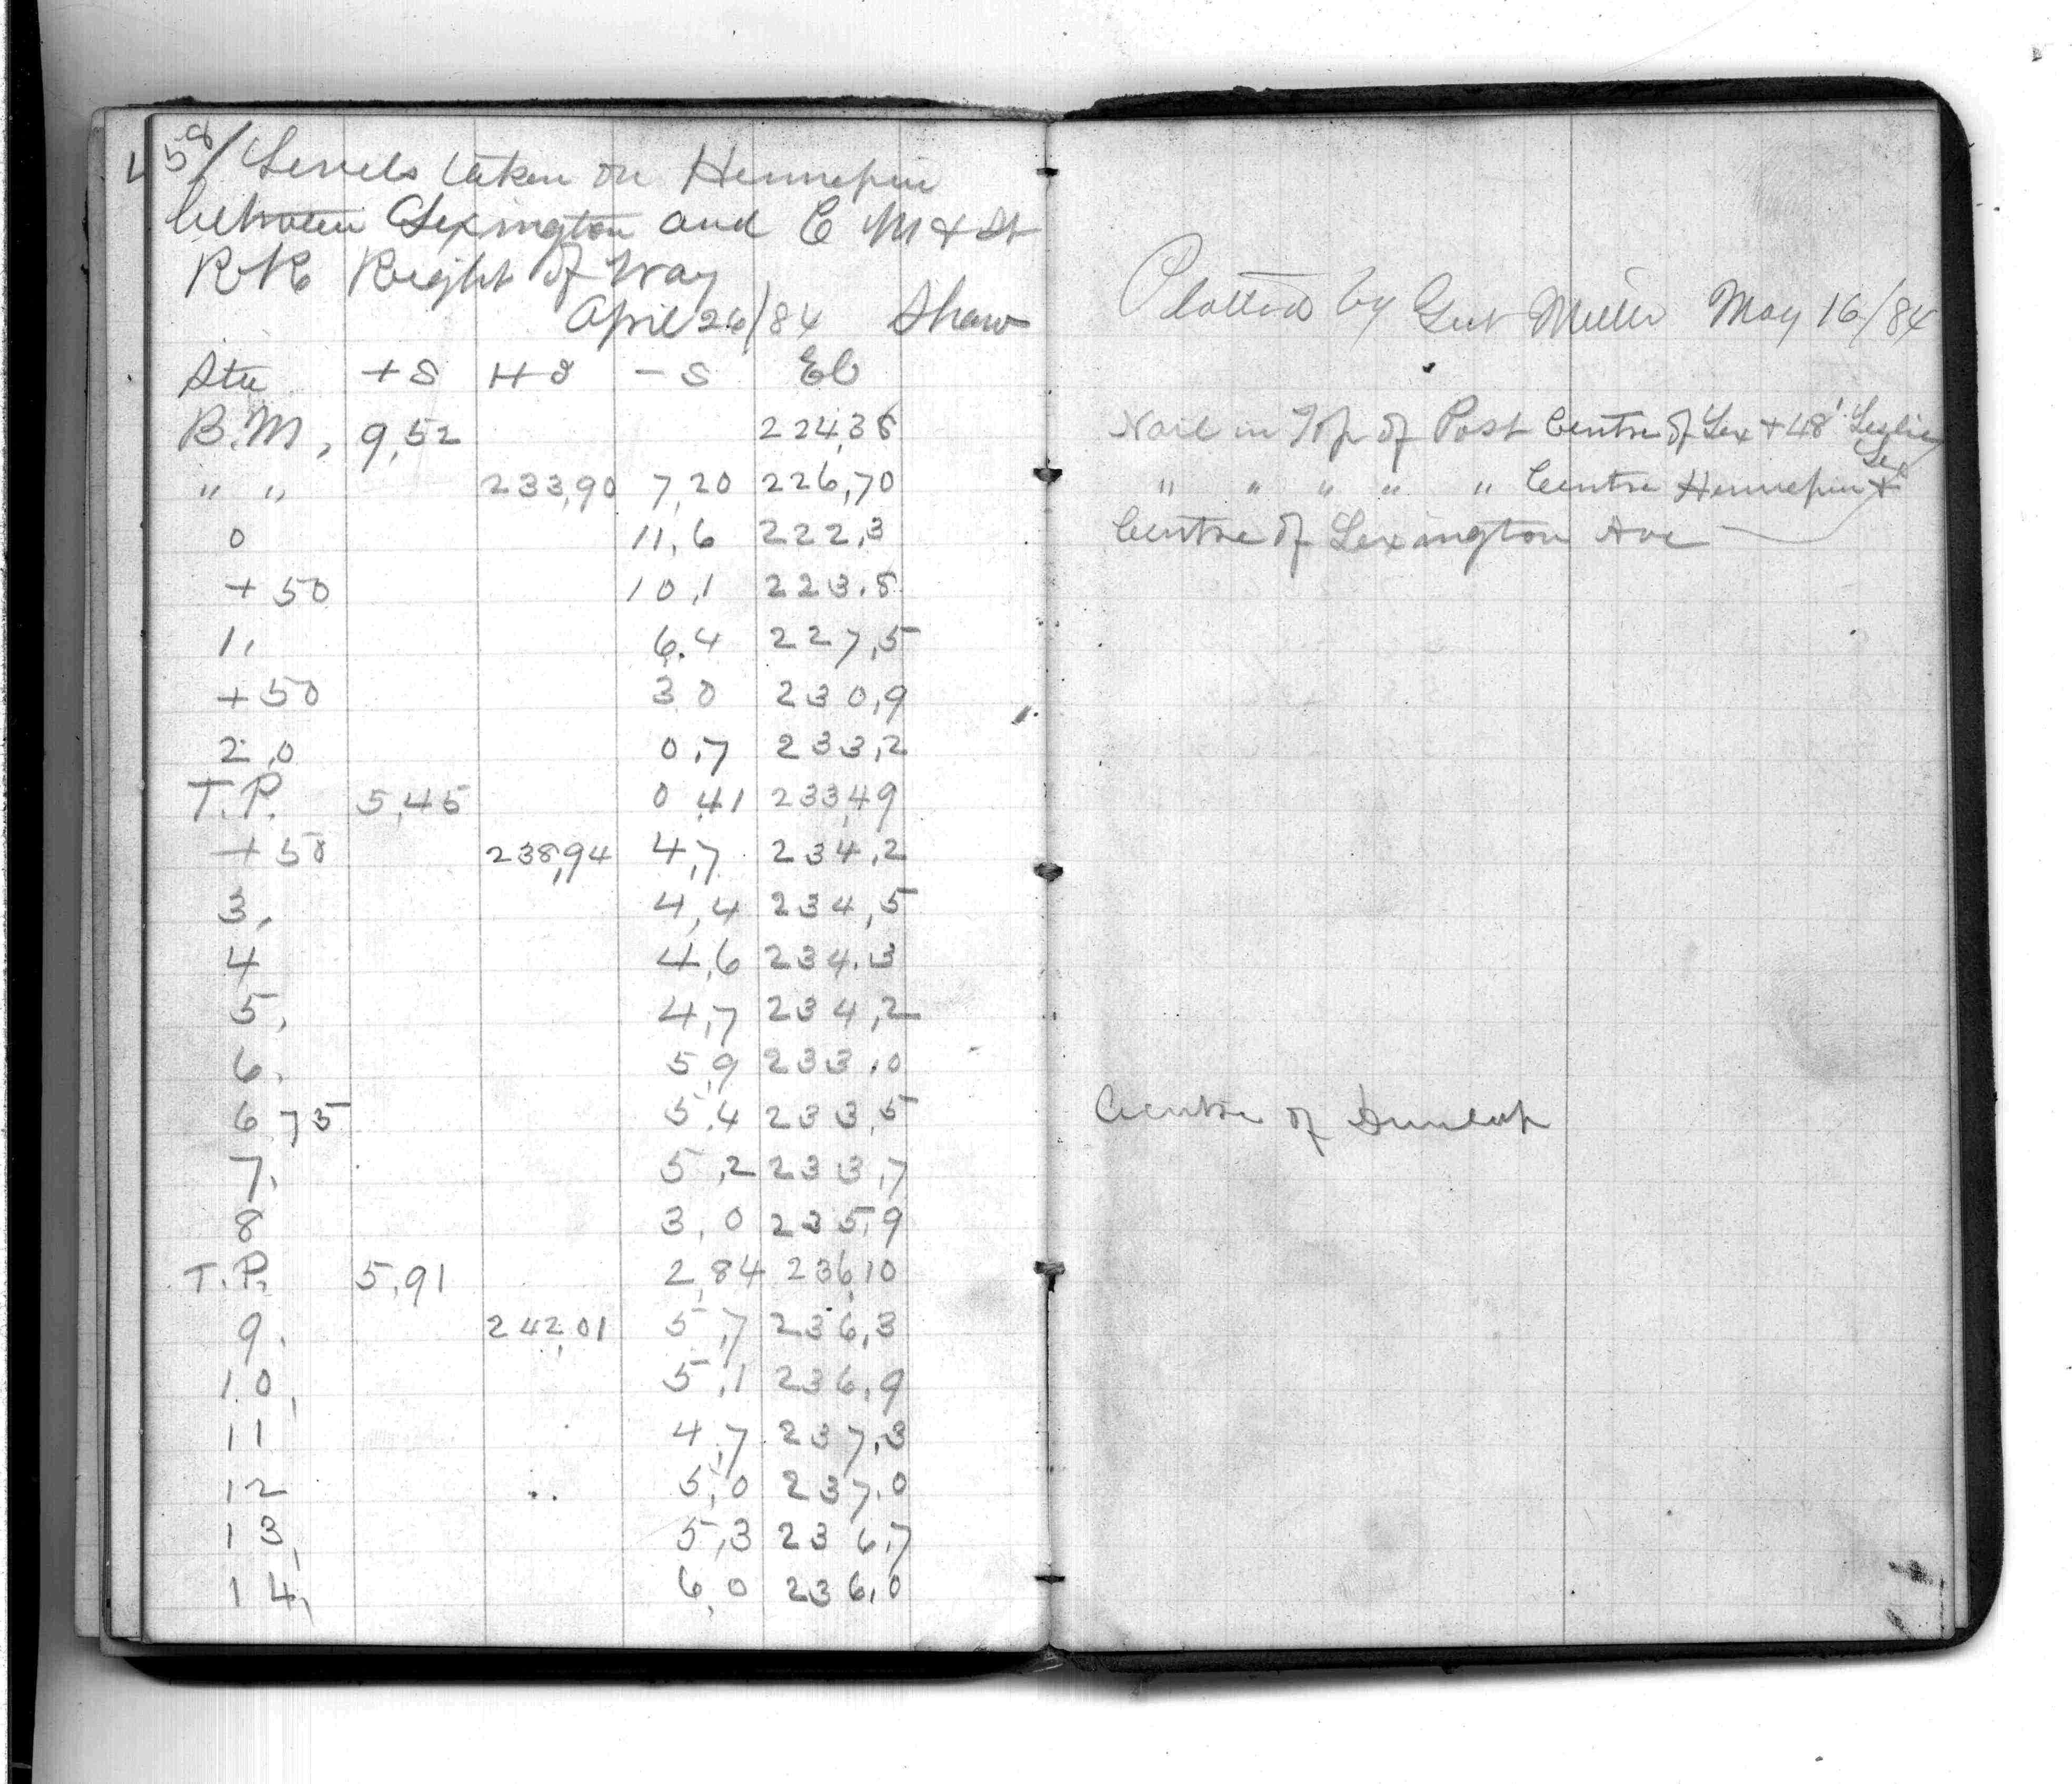 58/ Levels taken on Hennepin
between Lexington and C M & St
RR Right of Way
April 26/84 Shaw
Sta +S HI -S El
B.M, 9,52 224,38
" " 233,90 7,20 226,70
0 11,6 222,3
+50 10,1 223.8
1, 6.4 227,5
+50 3 0 230,9
2,0 0,7 233,2
T.P. 5,45 0,41 233,49
+50 238,94 4,7 234,2
3. 4,4 234,5
4 4,6 234.3
5, 4,7 234,2
6. 5,9 233.0
6 75 5,4 233,5
7. 5,2 233,7
8 3,0 235,9
T.P. 5,91 2,84 236,10
9. 242,01 5,7 236,3
10, 5,1 236,9
11 4,7 237,3
12 5,0 237.0
13, 5,3 236,7
14, 6,0 236,0
Plotted by Miller May 16/84
Nail in Top of Post Centre of Lex + 48' Leslie
" " " " " Centre Hennepin + Lex
Centre of Lexington Ave
Centre of Dunlap